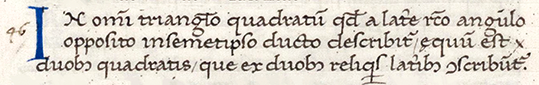 46 IN om̄i triangl̄o quadratū qd̄ a lat̄e rc̄o angl̄o
opposito in semetipso ducto describit̄ / equū est
duobꝫ quadratis / que ex duobꝫ reliqis lat̄ibꝫ ꝯscribūt̄.